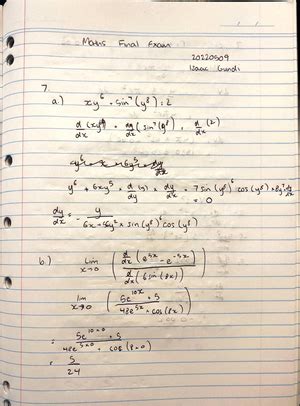 Maths Final Exam
20220509
Isaac Gundi
7.
a.) xy⁶ + sin⁷(y⁸) = 2
d/dx (xy⁶) + d/dx (sin⁷(y⁸)) = d/dx (2)
y⁶ + 6xy⁵ × d/dx (y) × dy/dx = 7 sin(y⁸)⁶ cos(y⁸) × 8y⁷ dy/dx
= 0
dy/dx = - y / 6x + 56y² × sin(y⁸)⁶ cos(y⁸)
b.) lim x→0 ( d/dx (e^5x - e^-5x) / d/dx (6 sin(8x)) )
lim x→0 ( 5e^10x + 5 / 48e^5x × cos(8x) )
= 5e^10×0 + 5 / 48e^5×0 × cos(8×0)
= 5/24